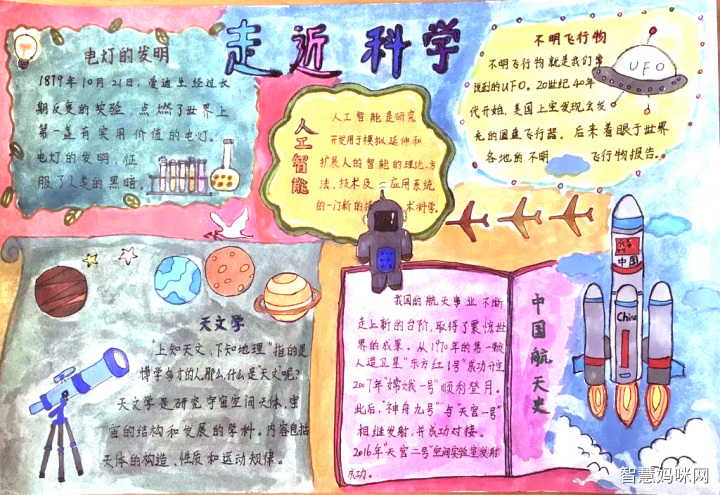 走近科学
电灯的发明
1879年10月21日，爱迪生经过长
期反复的实验，点燃了世界上
第一盏有实用价值的电灯。
电灯的发明，征
服了人类的黑暗。
人工智能
人工智能是研究
开发用于模拟延伸和
扩展人的智能的理论、方
法、技术及 应用系统
的一门新的技 术科学。
不明飞行物
不明飞行物就是我们常
说到的UFO。20世纪40年
代开始，美国上空发现名发
光的圆盘飞行器，后来着眼于世界
各地的不明 飞行物报告。
UFO
天文学
"上知天文，下知地理"指的是
博学多才的人那么，什么是天文呢？
天文学是研究宇宙空间天体，宇
宙的结构和发展的学科。内容包括
天体的构造、性质和运动规律。
中国航天史
我国的航天事业不断
走上新的台阶，取得了震惊世
界的成果。从1970年的第一颗
人造卫星"东方红1号"成功升空
2007年"嫦娥一号"顺利登月。
此后，"神舟九号"与"天宫一号"
相继发射，并成功对接。
2016年"天宫二号"空间实验室发射
成功。
中国
China
智慧妈咪网